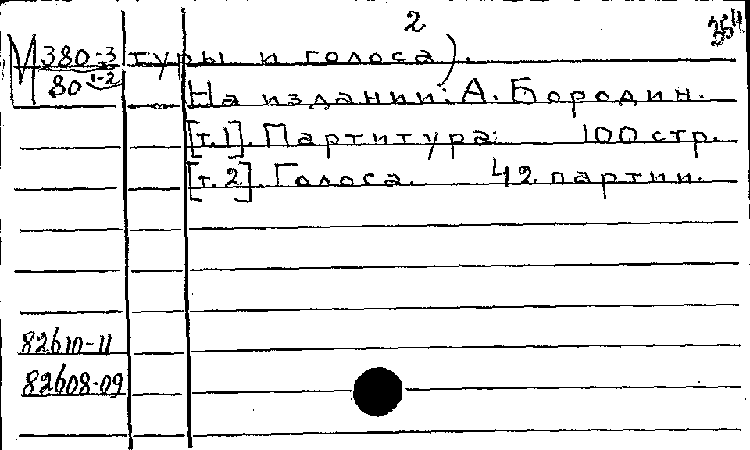 2
М 380-3 туры и голоса).
80 1-2
На издании: А. Бородин.
[т.1]. Партитура 100 стр.
[т.2]. Голоса. 42 партии.
82610-11
82608-09